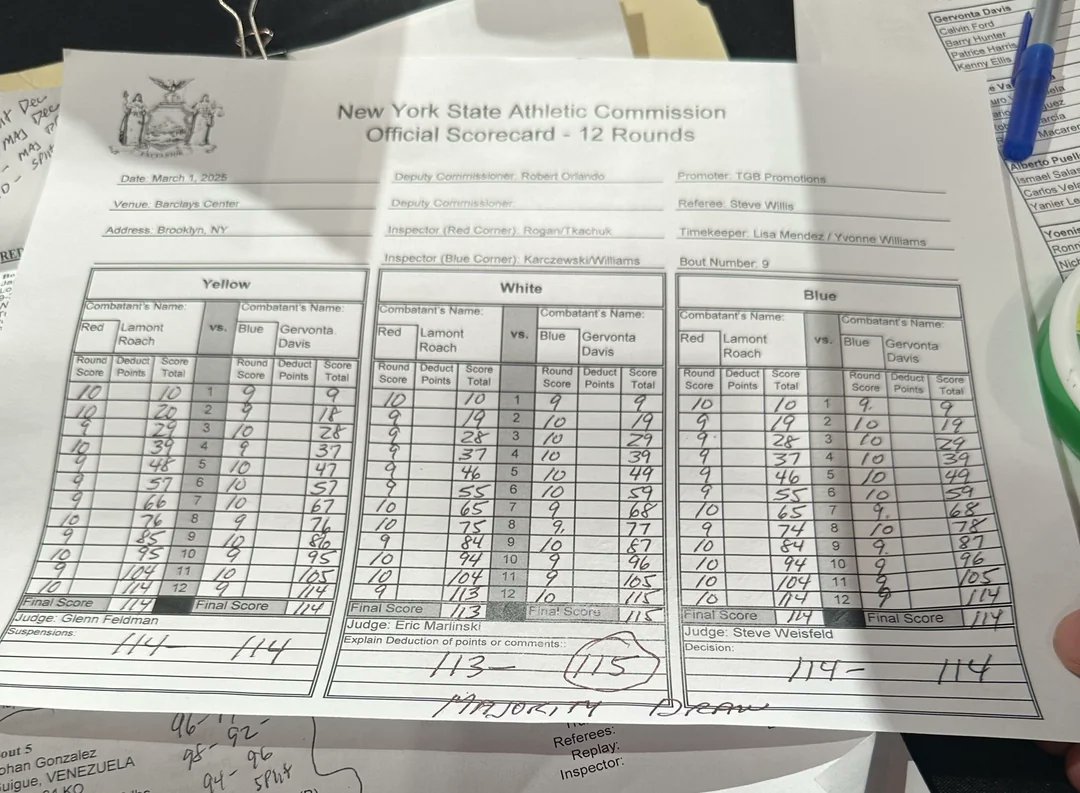 New York State Athletic Commission
Official Scorecard - 12 Rounds
Date: March 1, 2025 Deputy Commissioner: Robert Orlando Promoter: TGB Promotions
Venue: Barclays Center Deputy Commissioner: Referee: Steve Willis
Address: Brooklyn, NY Inspector (Red Corner): Rogan/Tkachuk Timekeeper: Lisa Mendez / Yvonne Williams
Inspector (Blue Corner): Karczewski/Williams Bout Number: 9
Yellow
Combatant's Name: vs. Combatant's Name:
Red Lamont Roach Blue Gervonta Davis
Round Score Deduct Points Score Total Round Score Deduct Points Score Total
10 10 1 9 9
10 20 2 9 18
9 29 3 10 28
10 39 4 9 37
9 48 5 10 47
9 57 6 10 57
9 66 7 10 67
10 76 8 9 76
9 85 9 10 86
10 95 10 9 95
9 104 11 10 105
10 114 12 9 114
Final Score 114 Final Score 114
Judge: Glenn Feldman
Suspensions:
114 - 114
White
Combatant's Name: vs. Combatant's Name:
Red Lamont Roach Blue Gervonta Davis
Round Score Deduct Points Score Total Round Score Deduct Points Score Total
10 10 1 9 9
9 19 2 10 19
9 28 3 10 29
9 37 4 10 39
9 46 5 10 49
9 55 6 10 59
10 65 7 9 68
10 75 8 9. 77
9 84 9 10 87
10 94 10 9 96
10 104 11 9 105
9 113 12 10 115
Final Score 113 Final Score 115
Judge: Eric Marlinski
Explain Deduction of points or comments::
113 - 115
MAJORITY DRAW
Blue
Combatant's Name: vs. Combatant's Name:
Red Lamont Roach Blue Gervonta Davis
Round Score Deduct Points Score Total Round Score Deduct Points Score Total
10 10 1 9. 9
9 19 2 10 19
9. 28 3 10 29
9 37 4 10 39
9 46 5 10 49
9 55 6 10 59
10 65 7 9. 68
9 74 8 10 78
10 84 9 9. 87
10 94 10 9 96
10 104 11 9 105
10 114 12 9 114
Final Score 114 Final Score 114
Judge: Steve Weisfeld
Decision:
114 - 114
Gervonta Davis
Calvin Ford
Barry Hunter
Patrice Harris
Kenny Ellis
Alberto Puell
Ismael Salas
Carlos Vela
Yanier Le
Yoenis
MAJ Dec
Split
out 5
ohan Gonzalez
uigue, VENEZUELA
KO
98 - 92
96
94 - Split
Referees:
Replay:
Inspector: